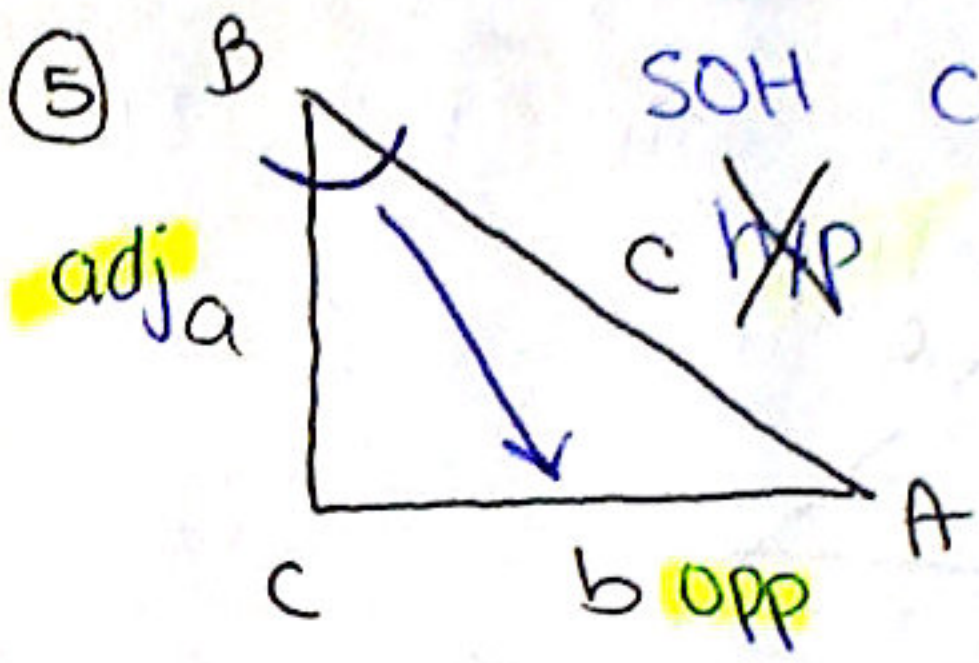 5 B SOH C
adj a c hyp
C b opp A